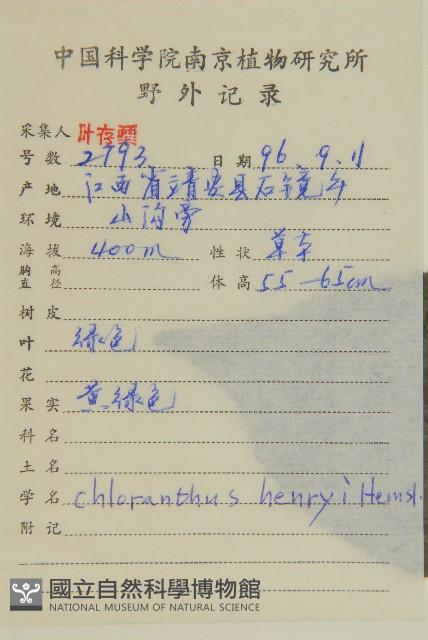 中国科学院南京植物研究所
野外记录
采集人 叶存粟
号数 2793 日期 96.9.11
产地 江西省靖安县石镜乡
环境 山沟旁
海拔 400m 性状 草本
胸高直径 体高 55-65cm
树皮
叶 绿色
花
果实 黄绿色
科名
土名
学名 chloranthus henryi Hemsl.
附记
國立自然科學博物館
NATIONAL MUSEUM OF NATURAL SCIENCE